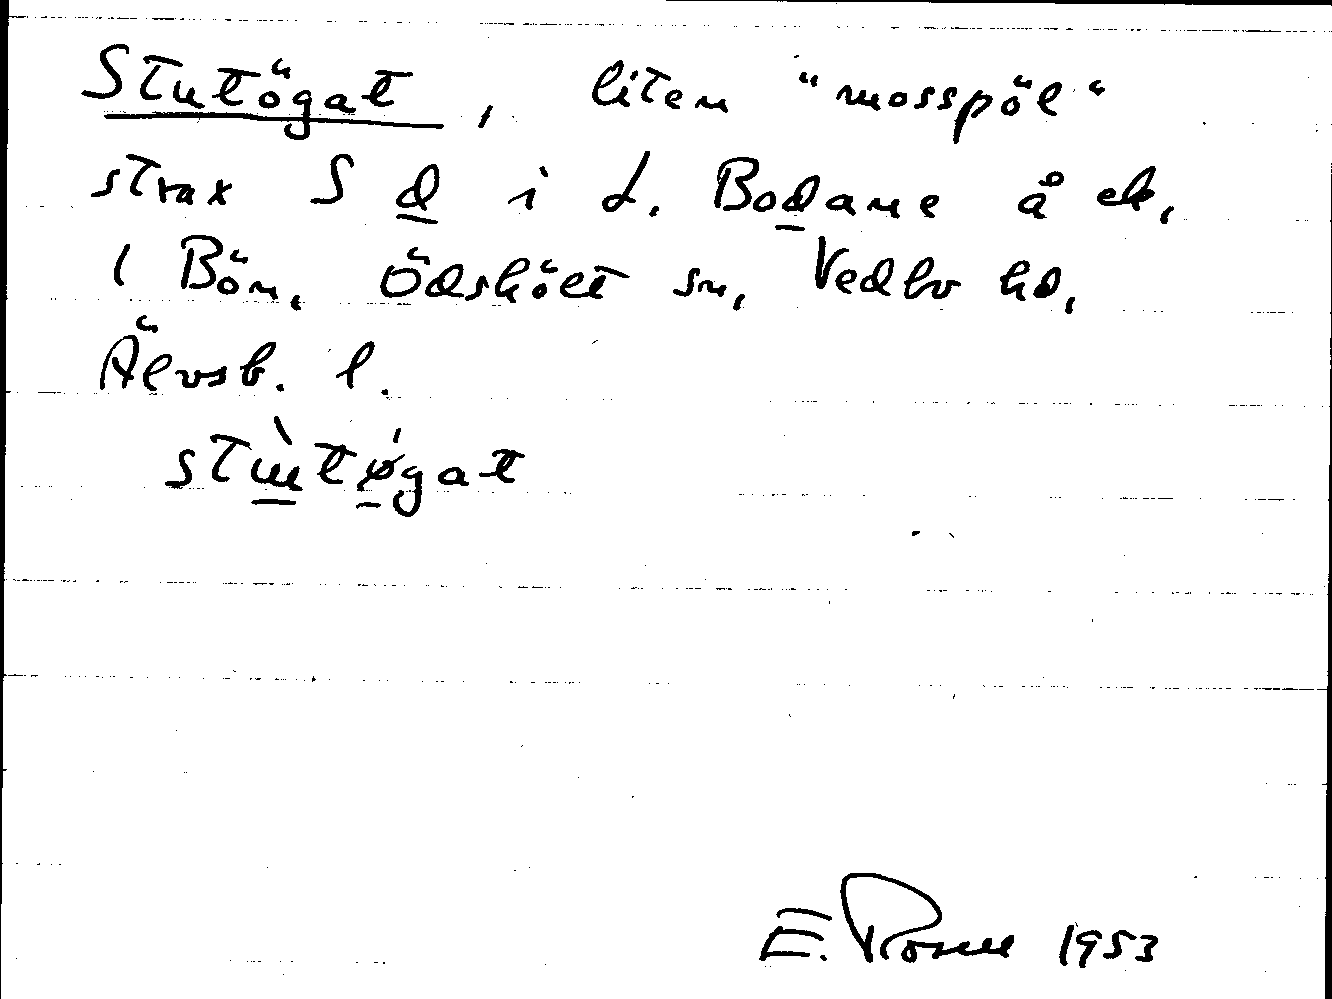 Stutögat, liten "mosspöl"
strax S d i L. Bodane å ek.
1 Bön, Ödskölt sn, Vedbo hd,
Älvsb. l.
E. Rosell 1953